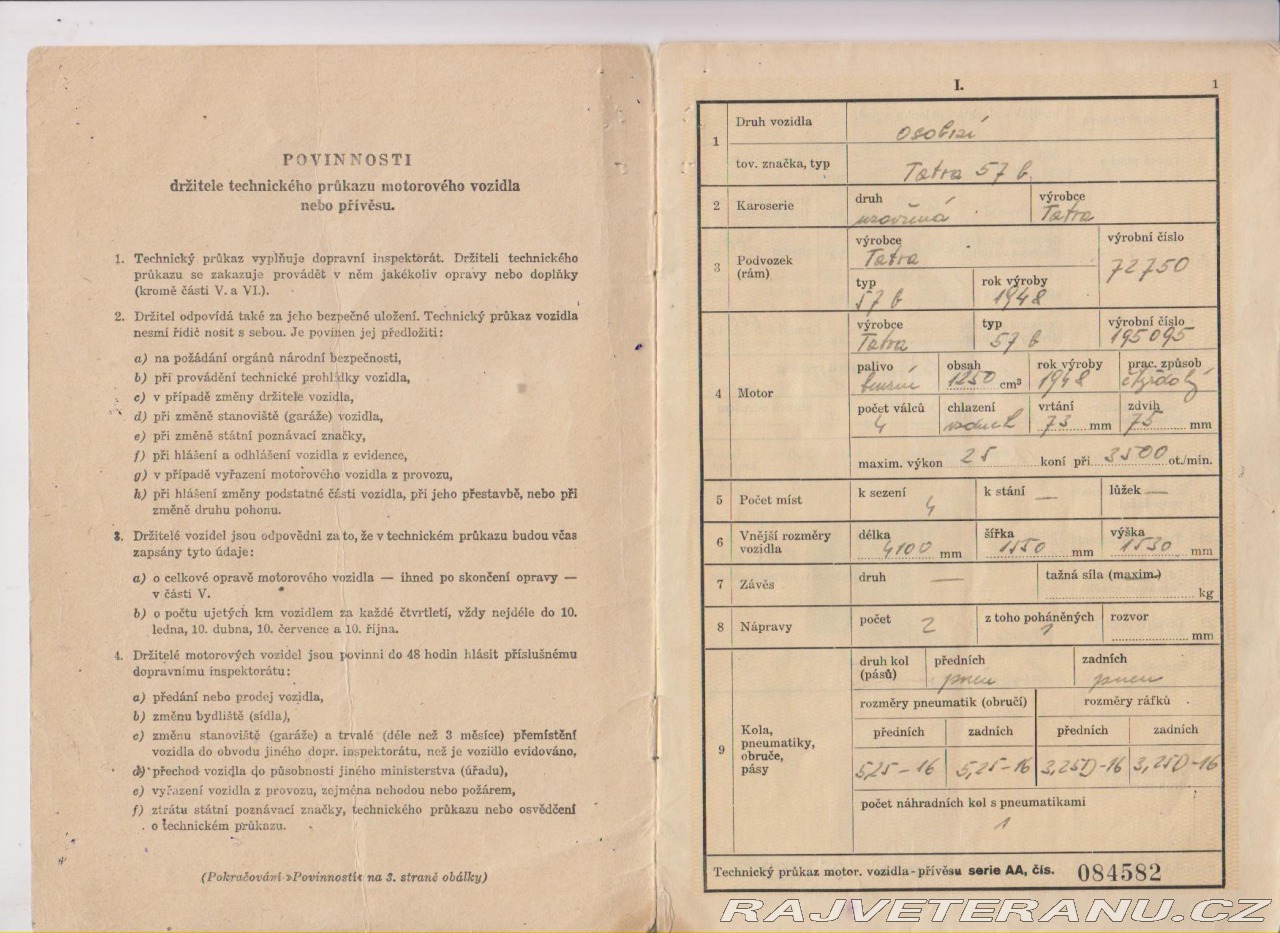 POVINNOSTI
držitele technického průkazu motorového vozidla
nebo přívěsu.
1. Technický průkaz vyplňuje dopravní inspektorát. Držiteli technického
průkazu se zakazuje provádět v něm jakékoliv opravy nebo doplňky
(kromě části V. a VI.).
2. Držitel odpovídá také za jeho bezpečné uložení. Technický průkaz vozidla
nesmí řidič nosit s sebou. Je povinen jej předložiti:
a) na požádání orgánů národní bezpečnosti,
b) při provádění technické prohlídky vozidla,
c) v případě změny držitele vozidla,
d) při změně stanoviště (garáže) vozidla,
e) při změně státní poznávací značky,
f) při hlášení a odhlášení vozidla z evidence,
g) v případě vyřazení motorového vozidla z provozu,
h) při hlášení změny podstatné části vozidla, při jeho přestavbě, nebo při
změně druhu pohonu.
3. Držitelé vozidel jsou odpovědni za to, že v technickém průkazu budou včas
zapsány tyto údaje:
a) o celkové opravě motorového vozidla — ihned po skončení opravy —
v části V.
b) o počtu ujetých km vozidlem za každé čtvrtletí, vždy nejdéle do 10.
ledna, 10. dubna, 10. července a 10. října.
4. Držitelé motorových vozidel jsou povinni do 48 hodin hlásit příslušnému
dopravnímu inspektorátu:
a) předání nebo prodej vozidla,
b) změnu bydliště (sídla),
c) změnu stanoviště (garáže) a trvalé (déle než 3 měsíce) přemístění
vozidla do obvodu jiného dopr. inspektorátu, než je vozidlo evidováno,
d) přechod vozidla do působnosti jiného ministerstva (úřadu),
e) vyřazení vozidla z provozu, zejména nehodou nebo požárem,
f) ztrátu státní poznávací značky, technického průkazu nebo osvědčení
o technickém průkazu.
(Pokračování »Povinností« na 3. straně obálky)
I. 1
1 Druh vozidla osobní
tov. značka, typ Tatra 57 b.
2 Karoserie druh uzavřená výrobce Tatra
3 Podvozek (rám) výrobce Tatra výrobní číslo 72750
typ 57 b rok výroby 1948
4 Motor výrobce Tatra typ 57 b výrobní číslo 195095
palivo benzin obsah 1250 cm³ rok výroby 1948 prac. způsob čtyřdobý
počet válců 4 chlazení vzduch vrtání 73 mm zdvih 75 mm
maxim. výkon 25 koní při 3500 ot./min.
5 Počet míst k sezení 4 k stání — lůžek —
6 Vnější rozměry vozidla délka 4100 mm šířka 1550 mm výška 1530 mm
7 Závěs druh — tažná síla (maxim.) kg
8 Nápravy počet 2 z toho poháněných 1 rozvor mm
9 Kola, pneumatiky, obruče, pásy
druh kol (pásů) předních pneu zadních pneu
rozměry pneumatik (obručí) rozměry ráfků
předních zadních předních zadních
5,25-16 5,25-16 3,25D-16 3,25D-16
počet náhradních kol s pneumatikami
1
Technický průkaz motor. vozidla-přívěsu serie AA, čís. 084582
RAJVETERANU.CZ